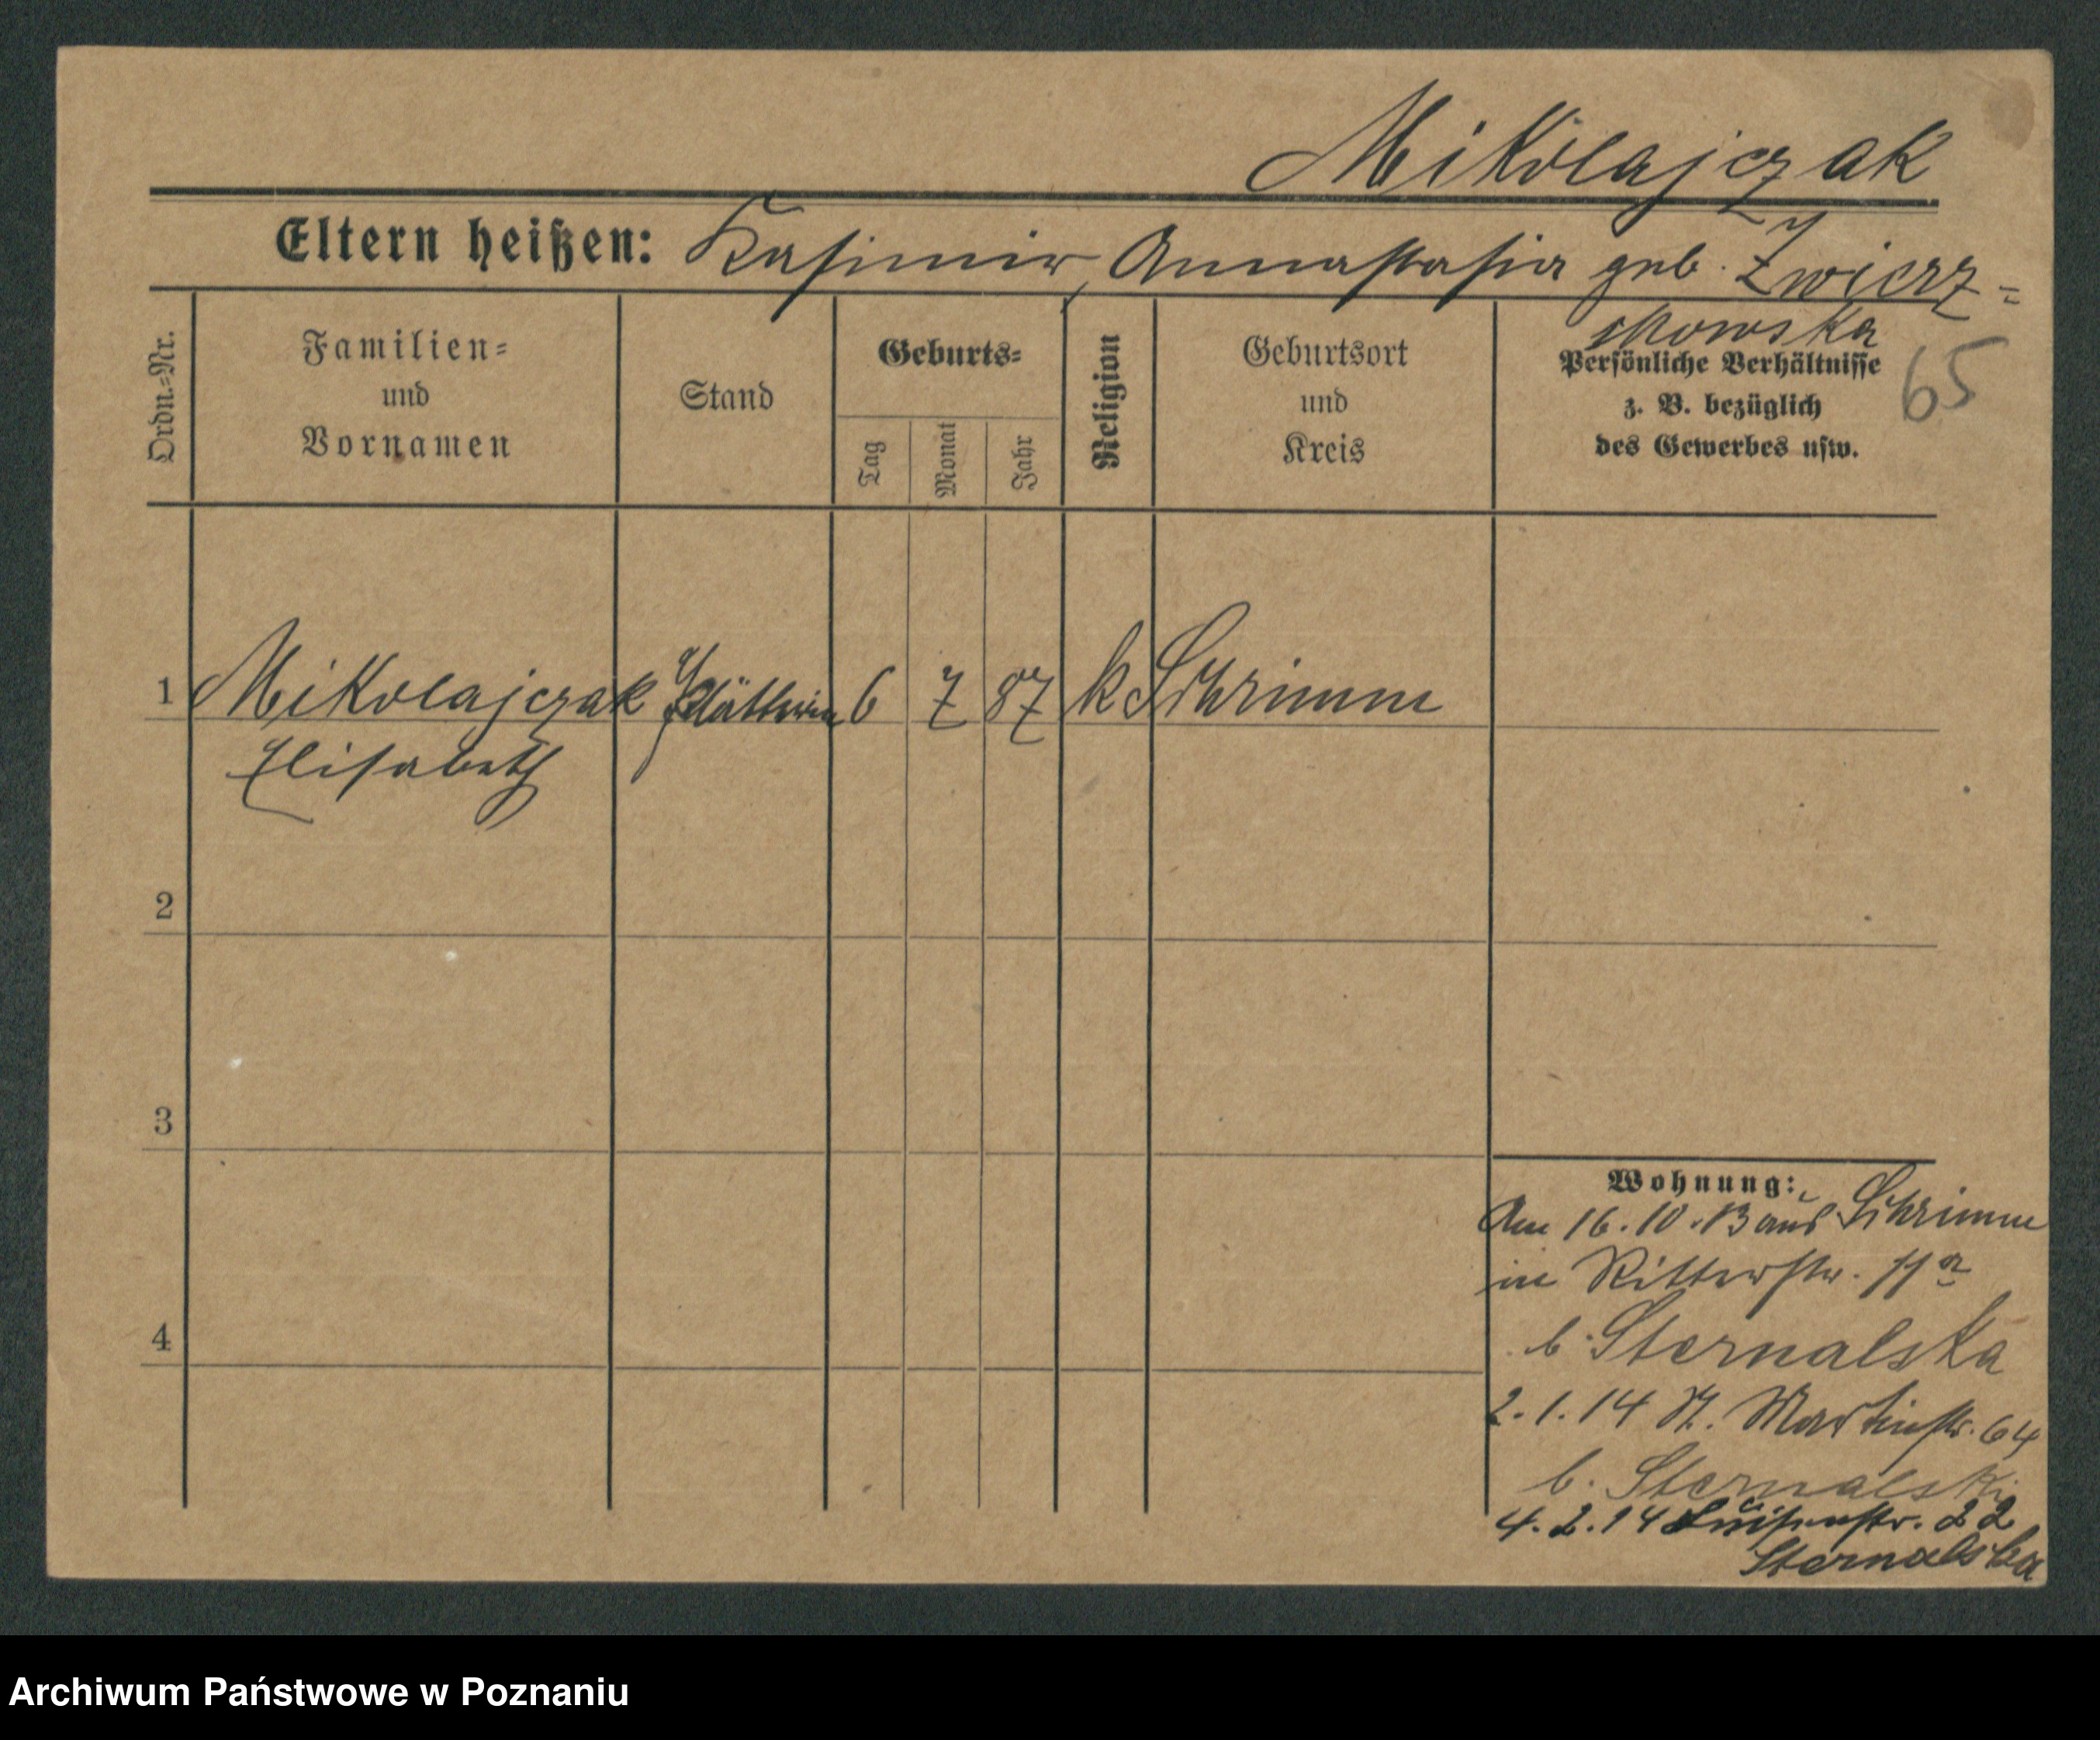 Mikolajczak
Eltern heißen: Kasimir, Annastasia geb. Zwierz=
skowska
65
Ordn.=Nr.
Familien=
und
Vornamen
Stand
Geburts=
Tag
Monat
Jahr
Religion
Geburtsort
und
Kreis
Persönliche Verhältnisse
z. B. bezüglich
des Gewerbes usw.
1 Mikolajczak Plätterin 6 7 87 k Schrimm
Elisabeth
2
3
4
Wohnung:
Am 16.10.13 aus Schrimm
in Ritterstr. 11a
b. Sternalska
2.1.14 St. Martinstr. 64
b. Sternalski
4.2.14 Luisenstr. 22
Sternalska
Archiwum Państwowe w Poznaniu